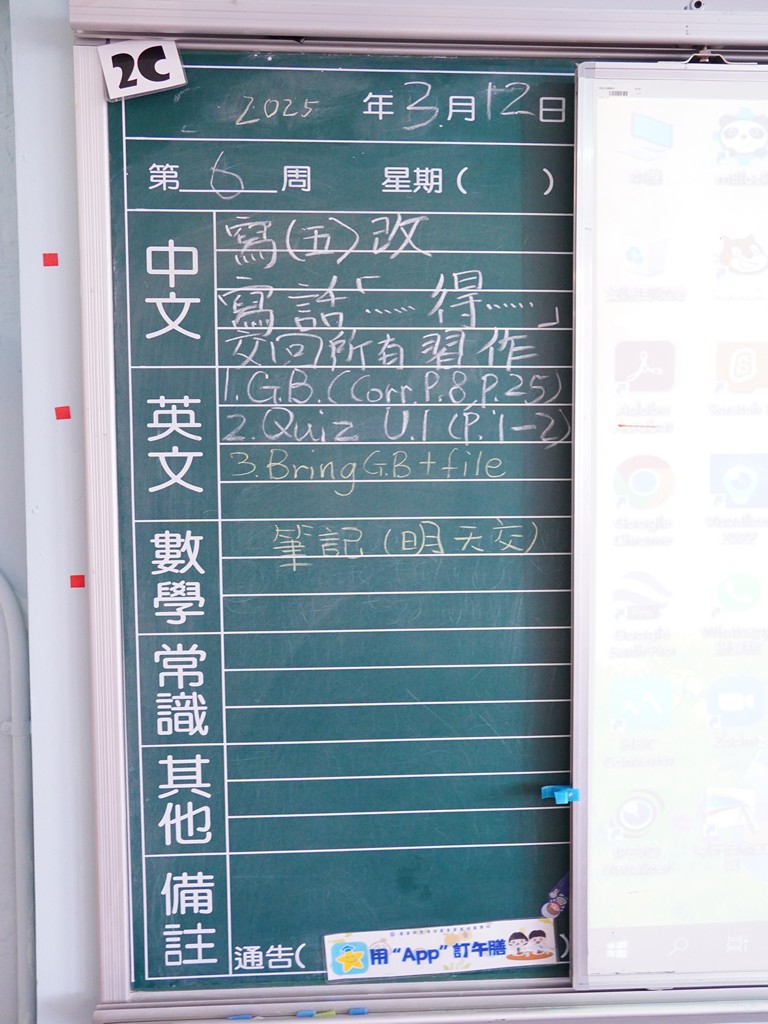 2C
2025 年 3 月 12 日
第 6 周 星期 ( )
中文
寫(五)改
寫話「……得……」
交回所有習作
英文
1. G.B. (Corr. P.8, P.25)
2. Quiz U.1 (P.1-2)
3. Bring G.B + file
數學
筆記 (明天交)
常識
其他
備註
通告( )
用 “App” 訂午膳